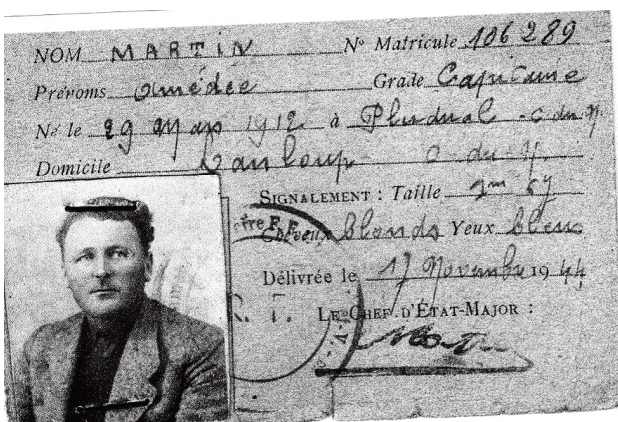 NOM MARTIN N° Matricule 106289
Prénoms Amédée Grade Capitaine
Né le 29 Mars 1912 à Pludual - C du N
Domicile Lanloup C du N
SIGNALEMENT : Taille 1m 67
Cheveux blonds Yeux bleus
Délivrée le 17 Novembre 1944
LE CHEF D'ÉTAT-MAJOR :